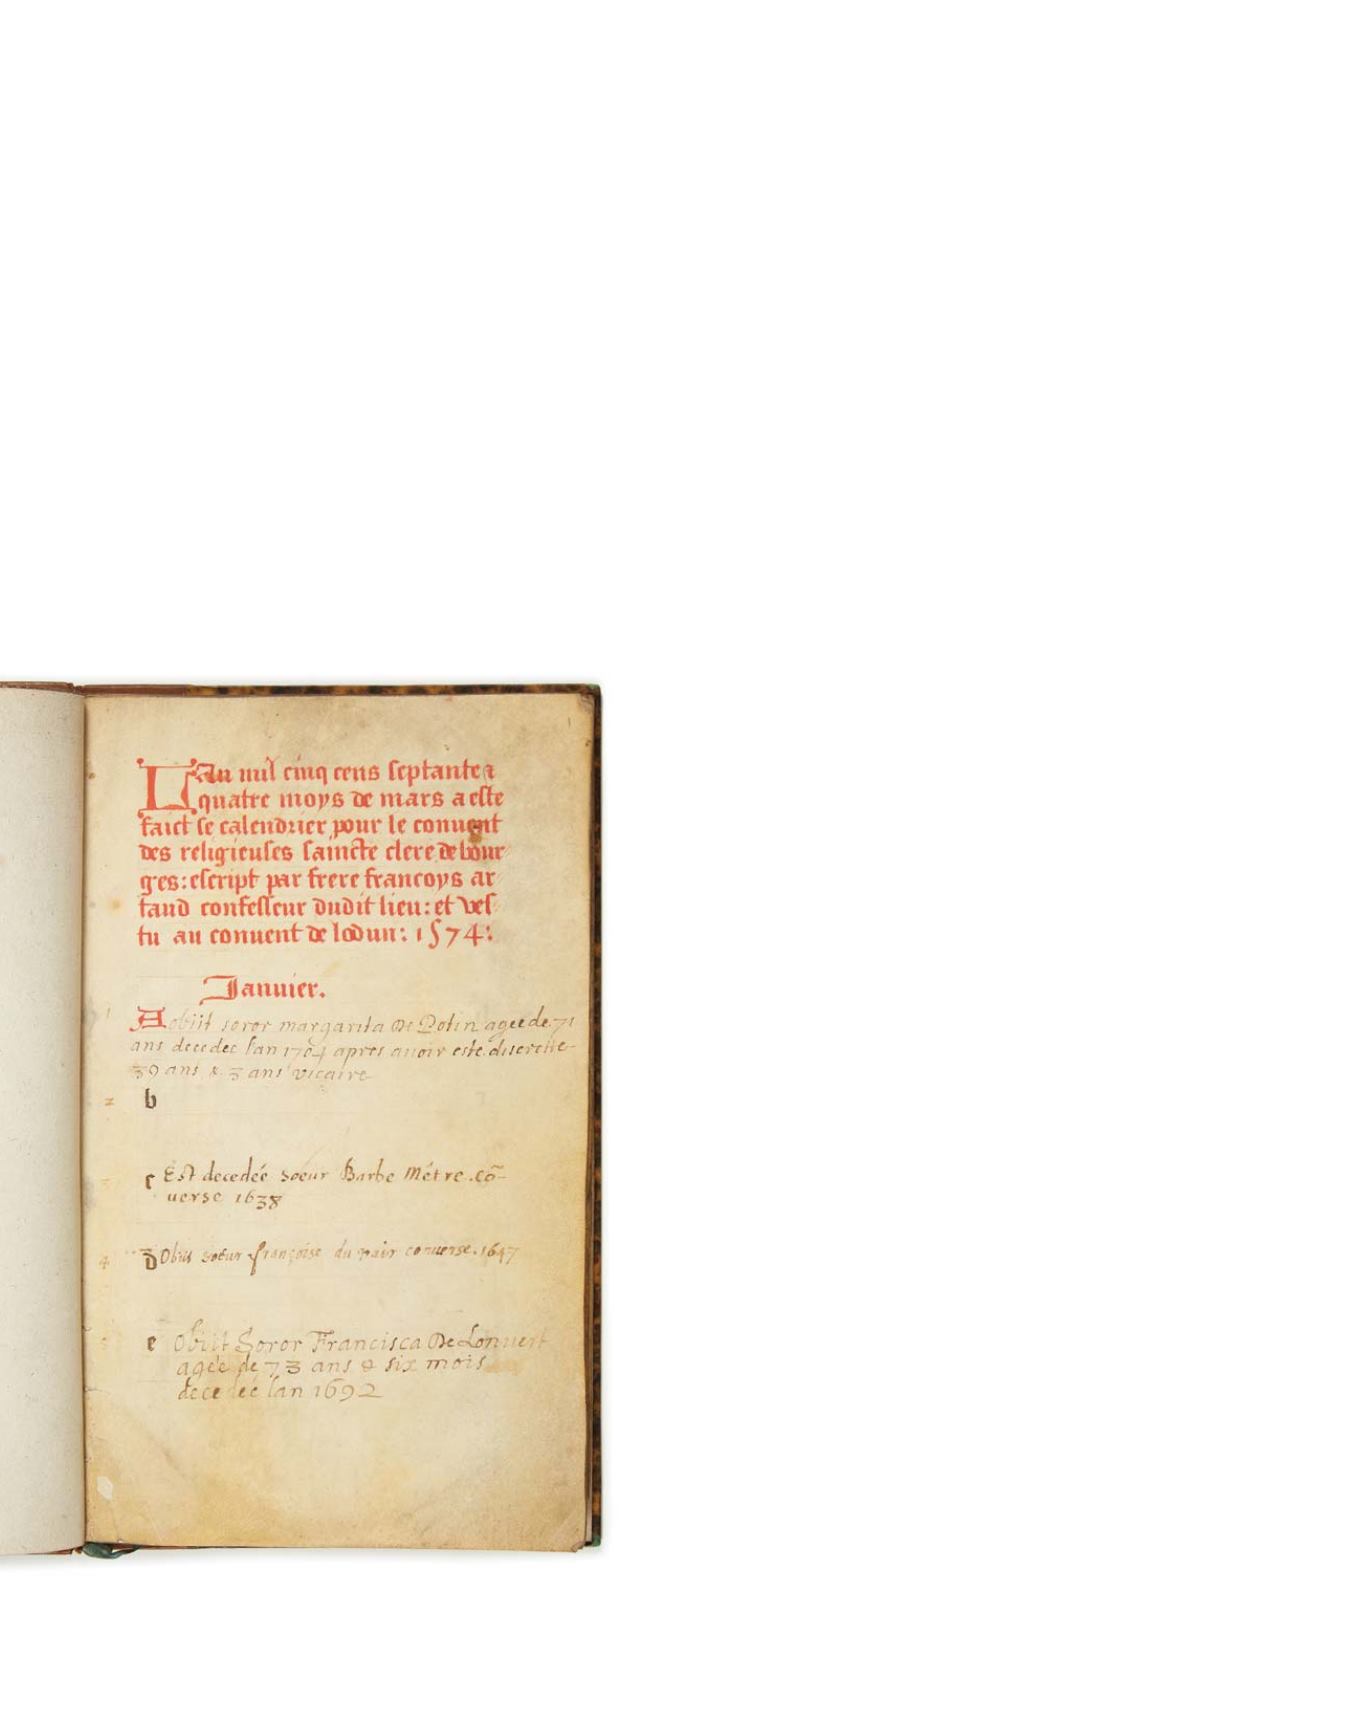 Lan mil cinq cens septante &
quatre moys de mars a este
faict se calendrier pour le conuent
des religieuses saincte clere de bour
ges: escript par frere francoys ar
taud confesseur dudit lieu: et ves
tu au conuent de lodun: 1574:
Januier.
1 A obiit soror margarita De agee de 71
ans decedee lan 1704 apres auoir este discrette
39 ans & 3 ans vicaire
2 b
3 c Est decedeé soeur Barbe Métre. cõ-
uerse 1638
4 d Obiit soeur françoise du conuerse. 1647
5 e Obiit Soror Francisca De Lonuert
ageé de 73 ans & six mois
decedeé lan 1692